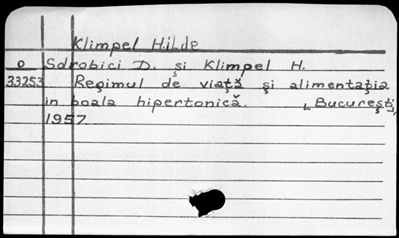 Klimpel Hilde
o Sdrobici D. şi Klimpel H.
33253 Regimul de viaţă şi alimentaţia
in boala hipertonică. [Bucureşti],
1957.